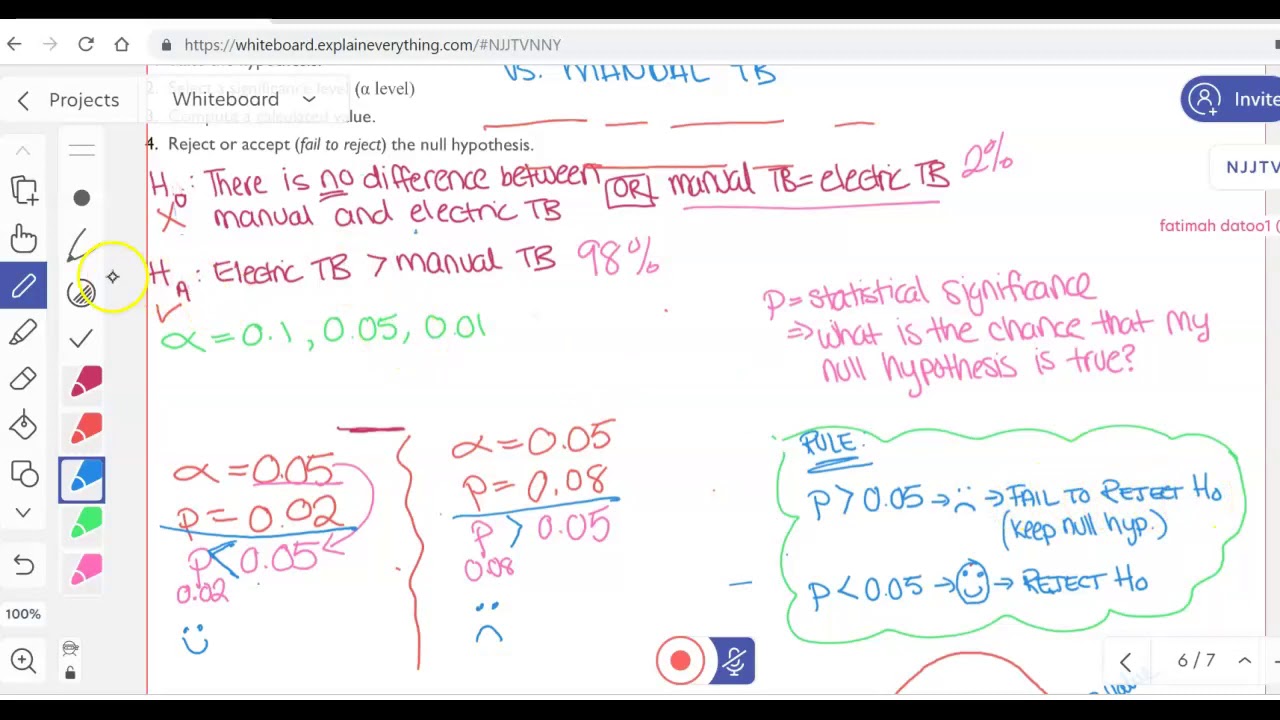 https://whiteboard.explaineverything.com/#NJJTVNNY
vs. MANUAL TB
Projects
Whiteboard
Invite
2. Select a significance level (α level)
value.
4. Reject or accept (fail to reject) the null hypothesis.
NJJTV
fatimah datoo1 (
H0: There is no difference between OR manual TB = electric TB 2%
X manual and electric TB
HA: Electric TB > manual TB 98%
✓
α = 0.1, 0.05, 0.01
p = statistical significance
⇒ what is the chance that my
null hypothesis is true?
α = 0.05
p = 0.02
p < 0.05
0.02
α = 0.05
p = 0.08
p > 0.05
0.08
RULE:
p > 0.05 → ☹ → FAIL TO REJECT H0
(keep null hyp.)
p < 0.05 → ☺ → REJECT H0
100%
6 / 7